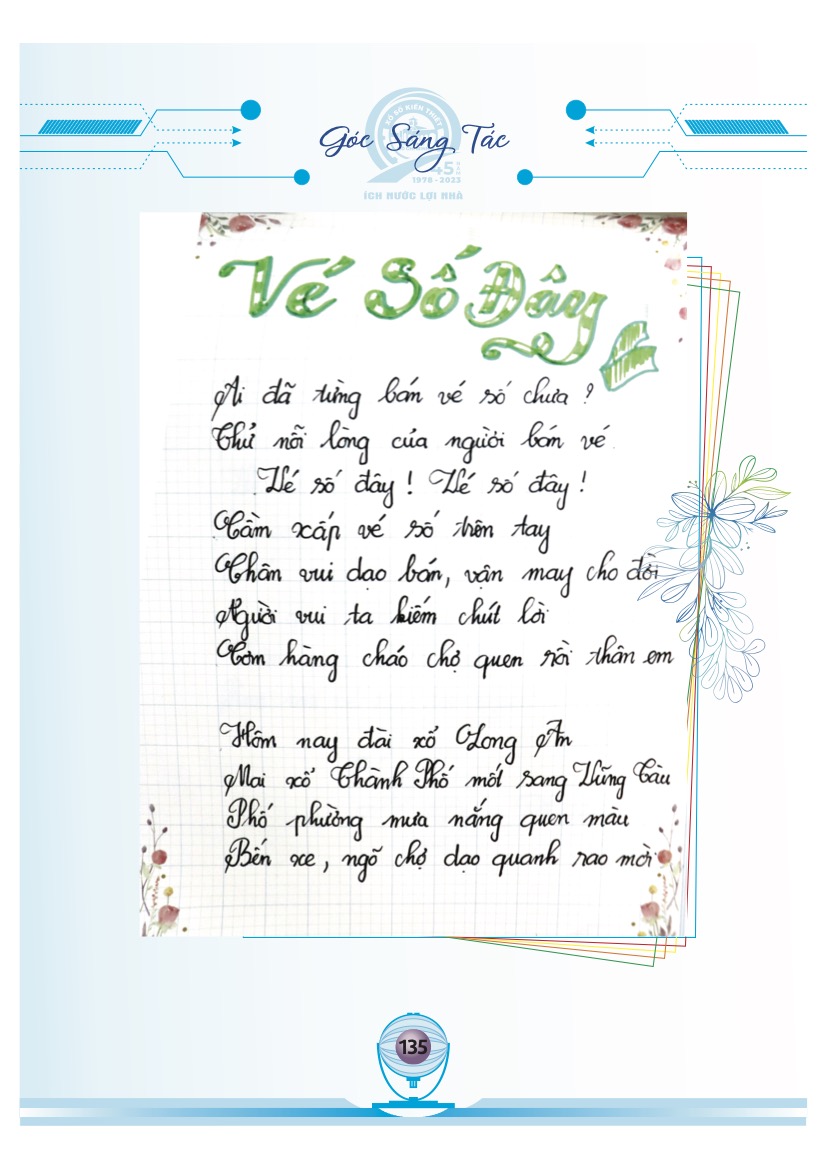 XỔ SỐ KIẾN THIẾT
Góc Sáng Tác
45 NĂM
1978 - 2023
ÍCH NƯỚC LỢI NHÀ
Vé Số Đây
Ai đã từng bán vé số chưa ?
Thử nỗi lòng của người bán vé
Vé số đây ! Vé số đây !
Cầm xấp vé số trên tay
Chân vui dạo bán, vận may cho đời
Người vui ta kiếm chút lời
Cơm hàng cháo chợ quen rồi thân em
Hôm nay đài xổ Long An
Mai xổ Thành Phố mốt sang Vũng Tàu
Phố phường mưa nắng quen màu
Bến xe, ngõ chợ dạo quanh rao mời
135